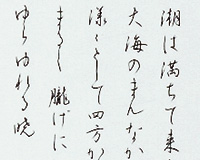 潮は満ちて来
大海のまんなか
漾々として四方が
まるく 朧げに
ゆらゆれる晩